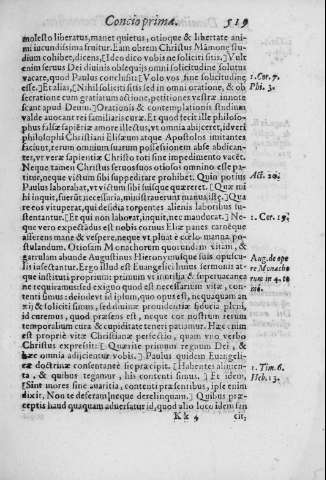 Concio prima. 519
molesto liberatus, manet quietus, otioque & libertate ani-
mi iucundissima fruitur. Eam obrem Christus Mámonę stu-
dium cohibet, dicens, [Ideo dico vobis ne soliciti sitis.] Vult
enim seruos Dei diuinis obsequijs omni solicitudine solutos
vacare, quod Paulus conclusit: [Volo vos sine solicitudine
esse.] Et alias, [Nihil soliciti sitis sed in omni oratione, & ob-
secratione cum gratiarum actione, petitiones vestræ innote
scant apud Deum.] Orationis & contemplationis studium
valde auocant rei familiaris curæ. Et quod fecit ille philoso-
phus falsæ sapiētiæ amore illectus, vt omnia abijceret, id veri
philosophi Christiani Elisæum atque Apostolos imitantes
faciunt, rerum omnium suarum possessionem abse abdican-
tes, vt veræ sapientiæ Christo toti sine impedimento vacēt.
Neque tamen Christus seruos suos otiosos omnino esse pa-
titur, neque victum sibi suppeditare prohibet. Quin potius
Paulus laborabat, vt victum sibi suisque quæreret. [Quæ mi
hi inquit, fuerūt necessaria, ministrauerunt manus istę.] Qua
re eos vituperat, qui desidia torpentes alienis laboribus su-
stentantur. [Et qui non laborat, inquit, nec manducet.] Ne-
que vero expectādus est nobis coruus Eliæ panes carnēque
afferens mane & vespere, neque vt pluat è cœlo manna po-
stulandum. Otiosam Monachorum quorundam vitam, &
garrulam abunde Augustinus Hieronymusque suis opuscu-
lis insectantur. Ergo illud est Euangelici huius sermonis at-
que instituti proprium: primum vt inertia & superuacanea
ne requiramus sed exiguo quod est necessarium vitæ, con-
tenti simus: deinde vt id ipsum, quo opus est, nequaquam an
xij & soliciti simus, sed animis prouidentiæ fiducia pleni,
id curemus, quod præsens est, neque cor nostrum rerum
temporalium cura & cupiditate teneri patiamur. Hæc enim
est propriè vitæ Christianæ perfectio, quam vno verbo
Christus expressit: [Quærite primum regnum Dei, &
hæc omnia adijcientur vobis.] Paulus quidem Euangeli-
cæ doctrinæ consentanee sic præcipit. [Habentes alimen-
ta, & quibus tegamur, his contenti simus.] Et idem,
[Sint mores sine auaritia, contenti præsentibus, ipse enim
dixit, Non te deseram neque derelinquam.] Quibus præ-
ceptis haud quaquam aduersatur id, quod alio loco idem san
Kk 4 cit,
1. Cor. 7.
Phi. 3.
Act. 20.
1. Cor. 19.
Aug. de ope
re Monacho
rum in 4. to
mo.
1. Tim. 6.
Heb. 13.